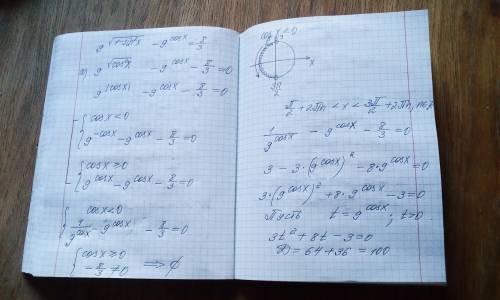 9^√(1-sin²x) - 9^cosx = 8/3
a) 9^√(cos²x) - 9^cosx - 8/3 = 0
9^|cosx| - 9^cosx - 8/3 = 0
{ cosx < 0
9^-cosx - 9^cosx - 8/3 = 0
{ cosx ≥ 0
9^cosx - 9^cosx - 8/3 = 0
{ cosx < 0
1/9^cosx - 9^cosx - 8/3 = 0
{ cosx ≥ 0
-8/3 ≠ 0 ⟹ ∅
cosx < 0
π/2
x
3π/2
π/2 + 2πn < x < 3π/2 + 2πn, n∈Z
1/9^cosx - 9^cosx - 8/3 = 0
3 - 3·(9^cosx)² - 8·9^cosx = 0
3·(9^cosx)² + 8·9^cosx - 3 = 0
Пусть t = 9^cosx; t>0
3t² + 8t - 3 = 0
D = 64 + 36 = 100